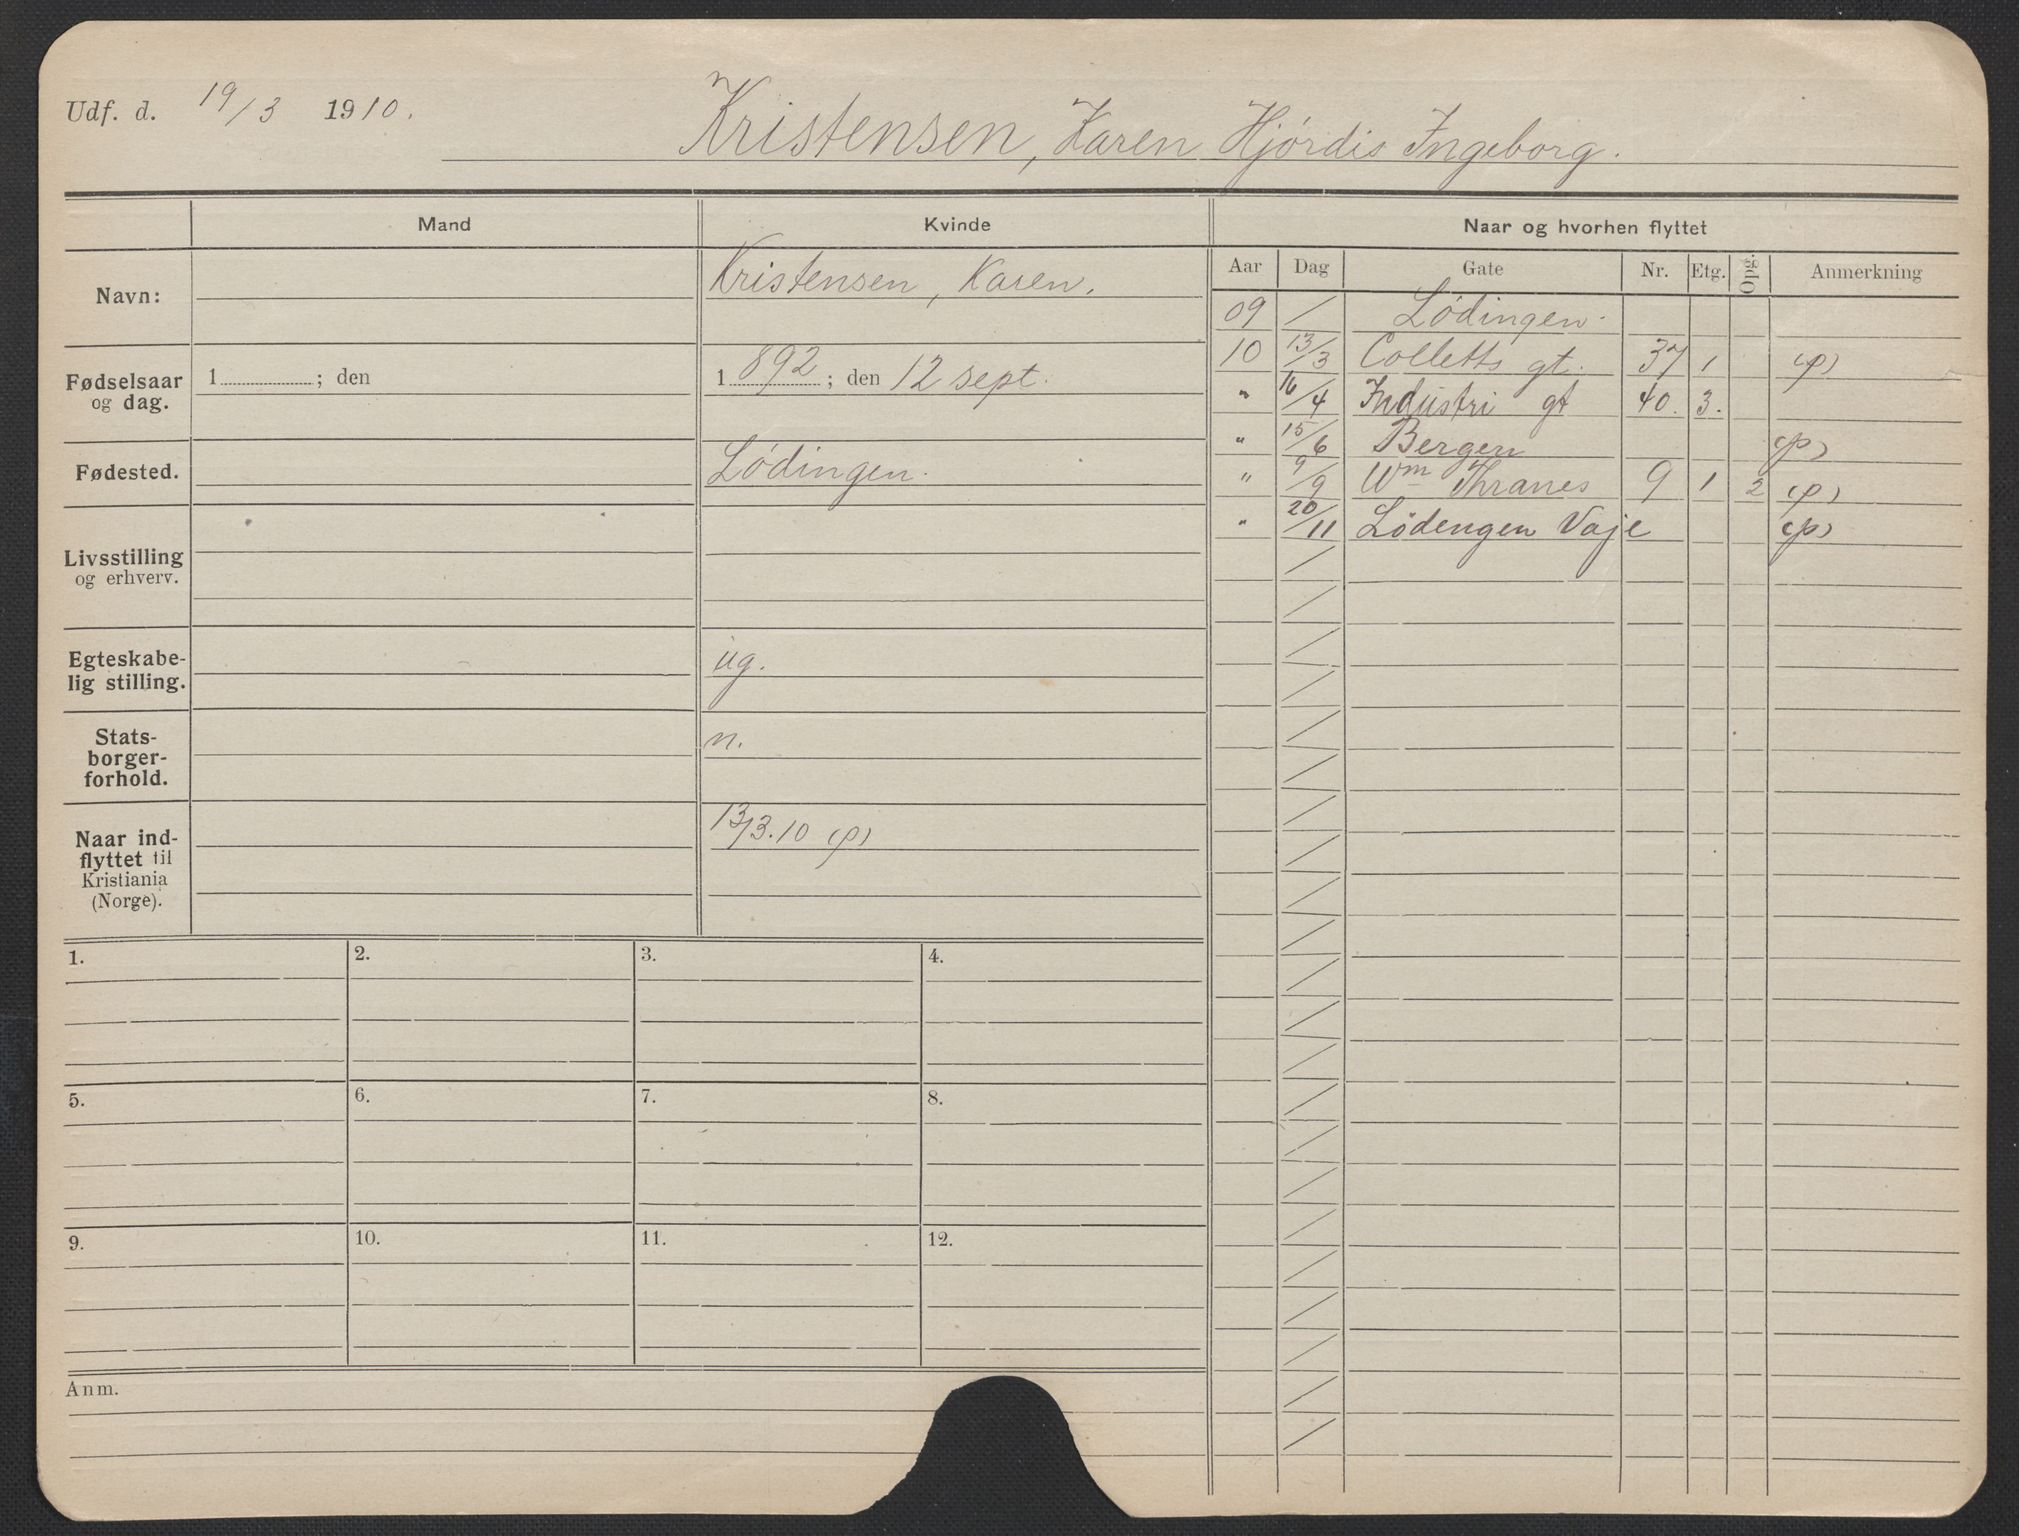 Udf. d. 19/3 1910.
Kristensen, Karen Hjørdis Ingeborg.
Mand
Kvinde
Naar og hvorhen flyttet
Navn:
Kristensen, Karen.
Fødselsaar
og dag.
1 ; den
1892; den 12 sept.
Fødested.
Lødingen.
Livsstilling
og erhverv.
Egteskabe-
lig stilling.
ug.
Stats-
borger-
forhold.
n.
Naar ind-
flyttet til
Kristiania
(Norge).
13/3.10 (p)
Aar Dag Gate Nr. Etg. Opg. Anmerkning
09 / Lødingen.
10 13/3 Colletts gt. 37 1 (p)
" 16/4 Industri gt 40. 3.
" 15/6 Bergen (p)
" 9/9 Wm Thranes 9 1 2 (p)
" 20/11 Lødengen Vaje (p)
1. 2. 3. 4.
5. 6. 7. 8.
9. 10. 11. 12.
Anm.